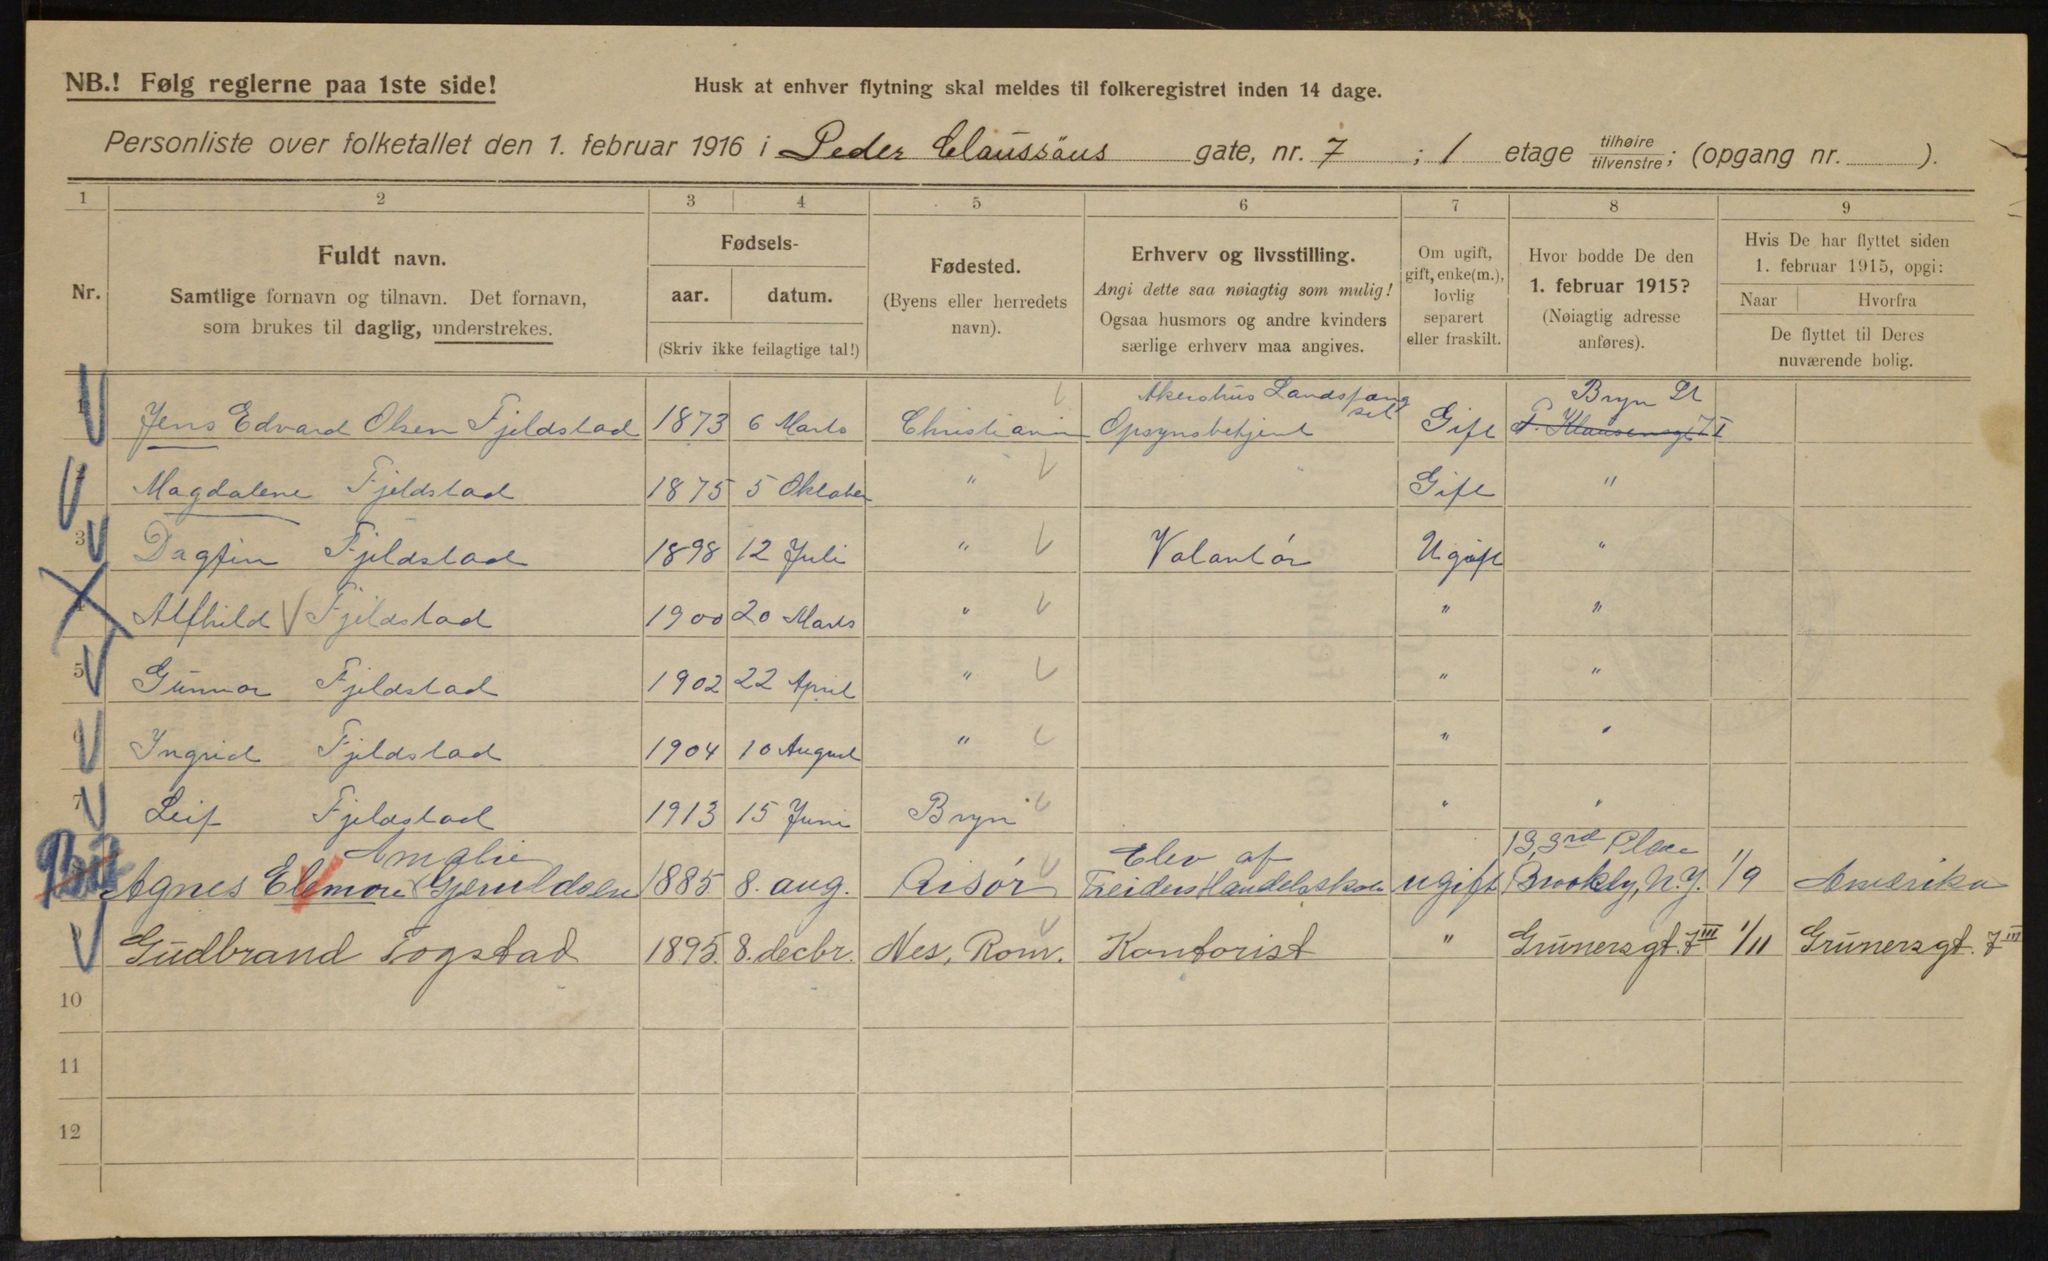 NB.! Følg reglerne paa 1ste side!
Husk at enhver flytning skal meldes til folkeregistret inden 14 dage.
Personliste over folketallet den 1. februar 1916 i Peder Claussöns gate, nr. 7 ; 1 etage tilhøire tilvenstre; (opgang nr. ).
1 2 3 4 5 6 7 8 9
Nr.
Fuldt navn.
Samtlige fornavn og tilnavn. Det fornavn,
som brukes til daglig, understrekes.
Fødsels-
aar. datum.
(Skriv ikke feilagtige tal!)
Fødested.
(Byens eller herredets
navn).
Erhverv og livsstilling.
Angi dette saa nøiagtig som mulig!
Ogsaa husmors og andre kvinders
særlige erhverv maa angives.
Om ugift,
gift, enke(m.),
lovlig
separert
eller fraskilt.
Hvor bodde De den
1. februar 1915?
(Nøiagtig adresse
anføres).
Hvis De har flyttet siden
1. februar 1915, opgi:
Naar Hvorfra
De flyttet til Deres
nuværende bolig.
Akershus Landsfæng Bryn St
sel
Jens Edvard Olsen Fjeldstad 1873 6 Marts Christiania Opsynsbetjent Gift P. Klausensgt 7 I
Magdalene Fjeldstad 1875 5 Oktober " Gift "
3 Dagfin Fjeldstad 1898 12 Juli " Volantør Ugift "
4 Alfhild Fjeldstad 1900 20 Marts " " "
5 Gunnar Fjeldstad 1902 22 April " " "
6 Ingrid Fjeldstad 1904 10 August " " "
7 Leif Fjeldstad 1913 15 Juni Bryn " "
Amalie Elev af 13, 3rd Place
Agnes Elemore Gjeruldsen 1885 8. aug. Risør Treiders Handelsskole ugift Brookly, N.Y. 1/9 Amerika
Gudbrand Togstad 1895. 8. decbr. Nes, Rom. Kontorist " Grünersgt. 7 III 1/11 Grünersgt. 7 III
10
11
12